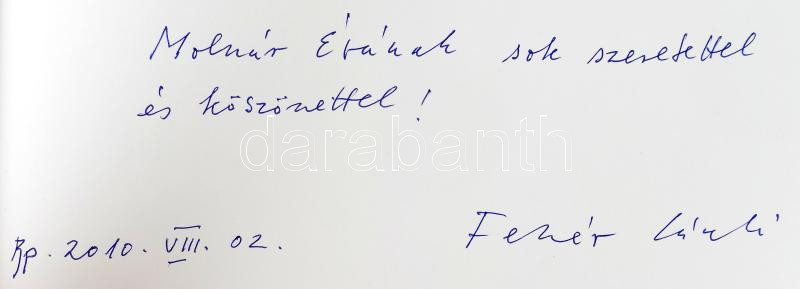 Molnár Évának sok szeretettel
és köszönettel!
darabanth
Bp. 2010. VIII. 02.
Fehér László